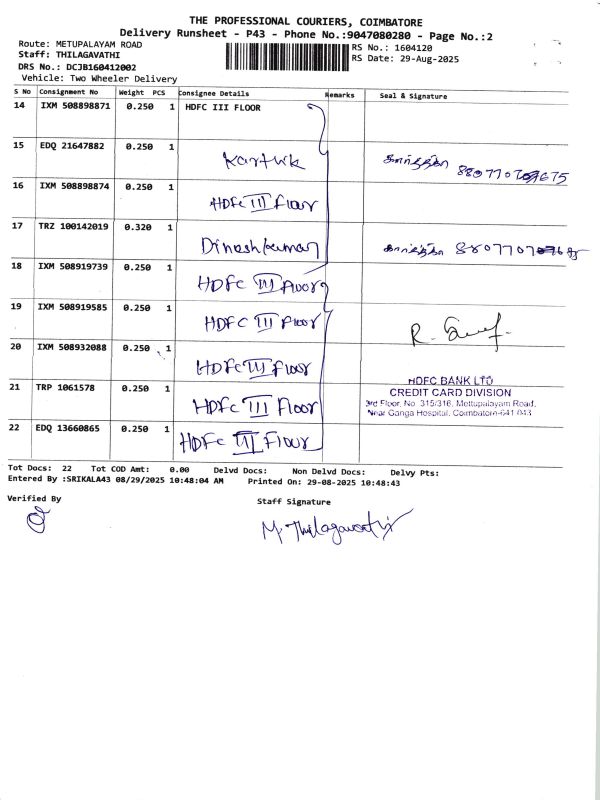 THE PROFESSIONAL COURIERS, COIMBATORE
Delivery Runsheet - P43 - Phone No.:9047080280 - Page No.:2
Route: METUPALAYAM ROAD
RS No.: 1604120
Staff: THILAGAVATHI
RS Date: 29-Aug-2025
DRS No.: DCJB160412002
Vehicle: Two Wheeler Delivery
S No Consignment No Weight PCS Consignee Details Remarks Seal & Signature
14 IXM 508898871 0.250 1 HDFC III FLOOR
15 EDQ 21647882 0.250 1 Karthik கார்த்திகா
16 IXM 508898874 0.250 1 HDFC III Floor
17 TRZ 100142019 0.320 1 Dineshkumar கார்த்திகா
18 IXM 508919739 0.250 1 HDFC III Floor
19 IXM 508919585 0.250 1 HDFC III Floor
20 IXM 508932088 0.250 1 HDFC III Floor
21 TRP 1061578 0.250 1 HDFC III Floor
HDFC BANK LTD
CREDIT CARD DIVISION
3rd Floor, No. 315/316, Mettupalayam Road,
Near Ganga Hospital, Coimbatore-641 043
22 EDQ 13660865 0.250 1 HDFC III Floor
Tot Docs: 22 Tot COD Amt: 0.00 Delvd Docs: Non Delvd Docs: Delvy Pts:
Entered By :SRIKALA43 08/29/2025 10:48:04 AM Printed On: 29-08-2025 10:48:43
Verified By
Staff Signature
M. Thilagavathi